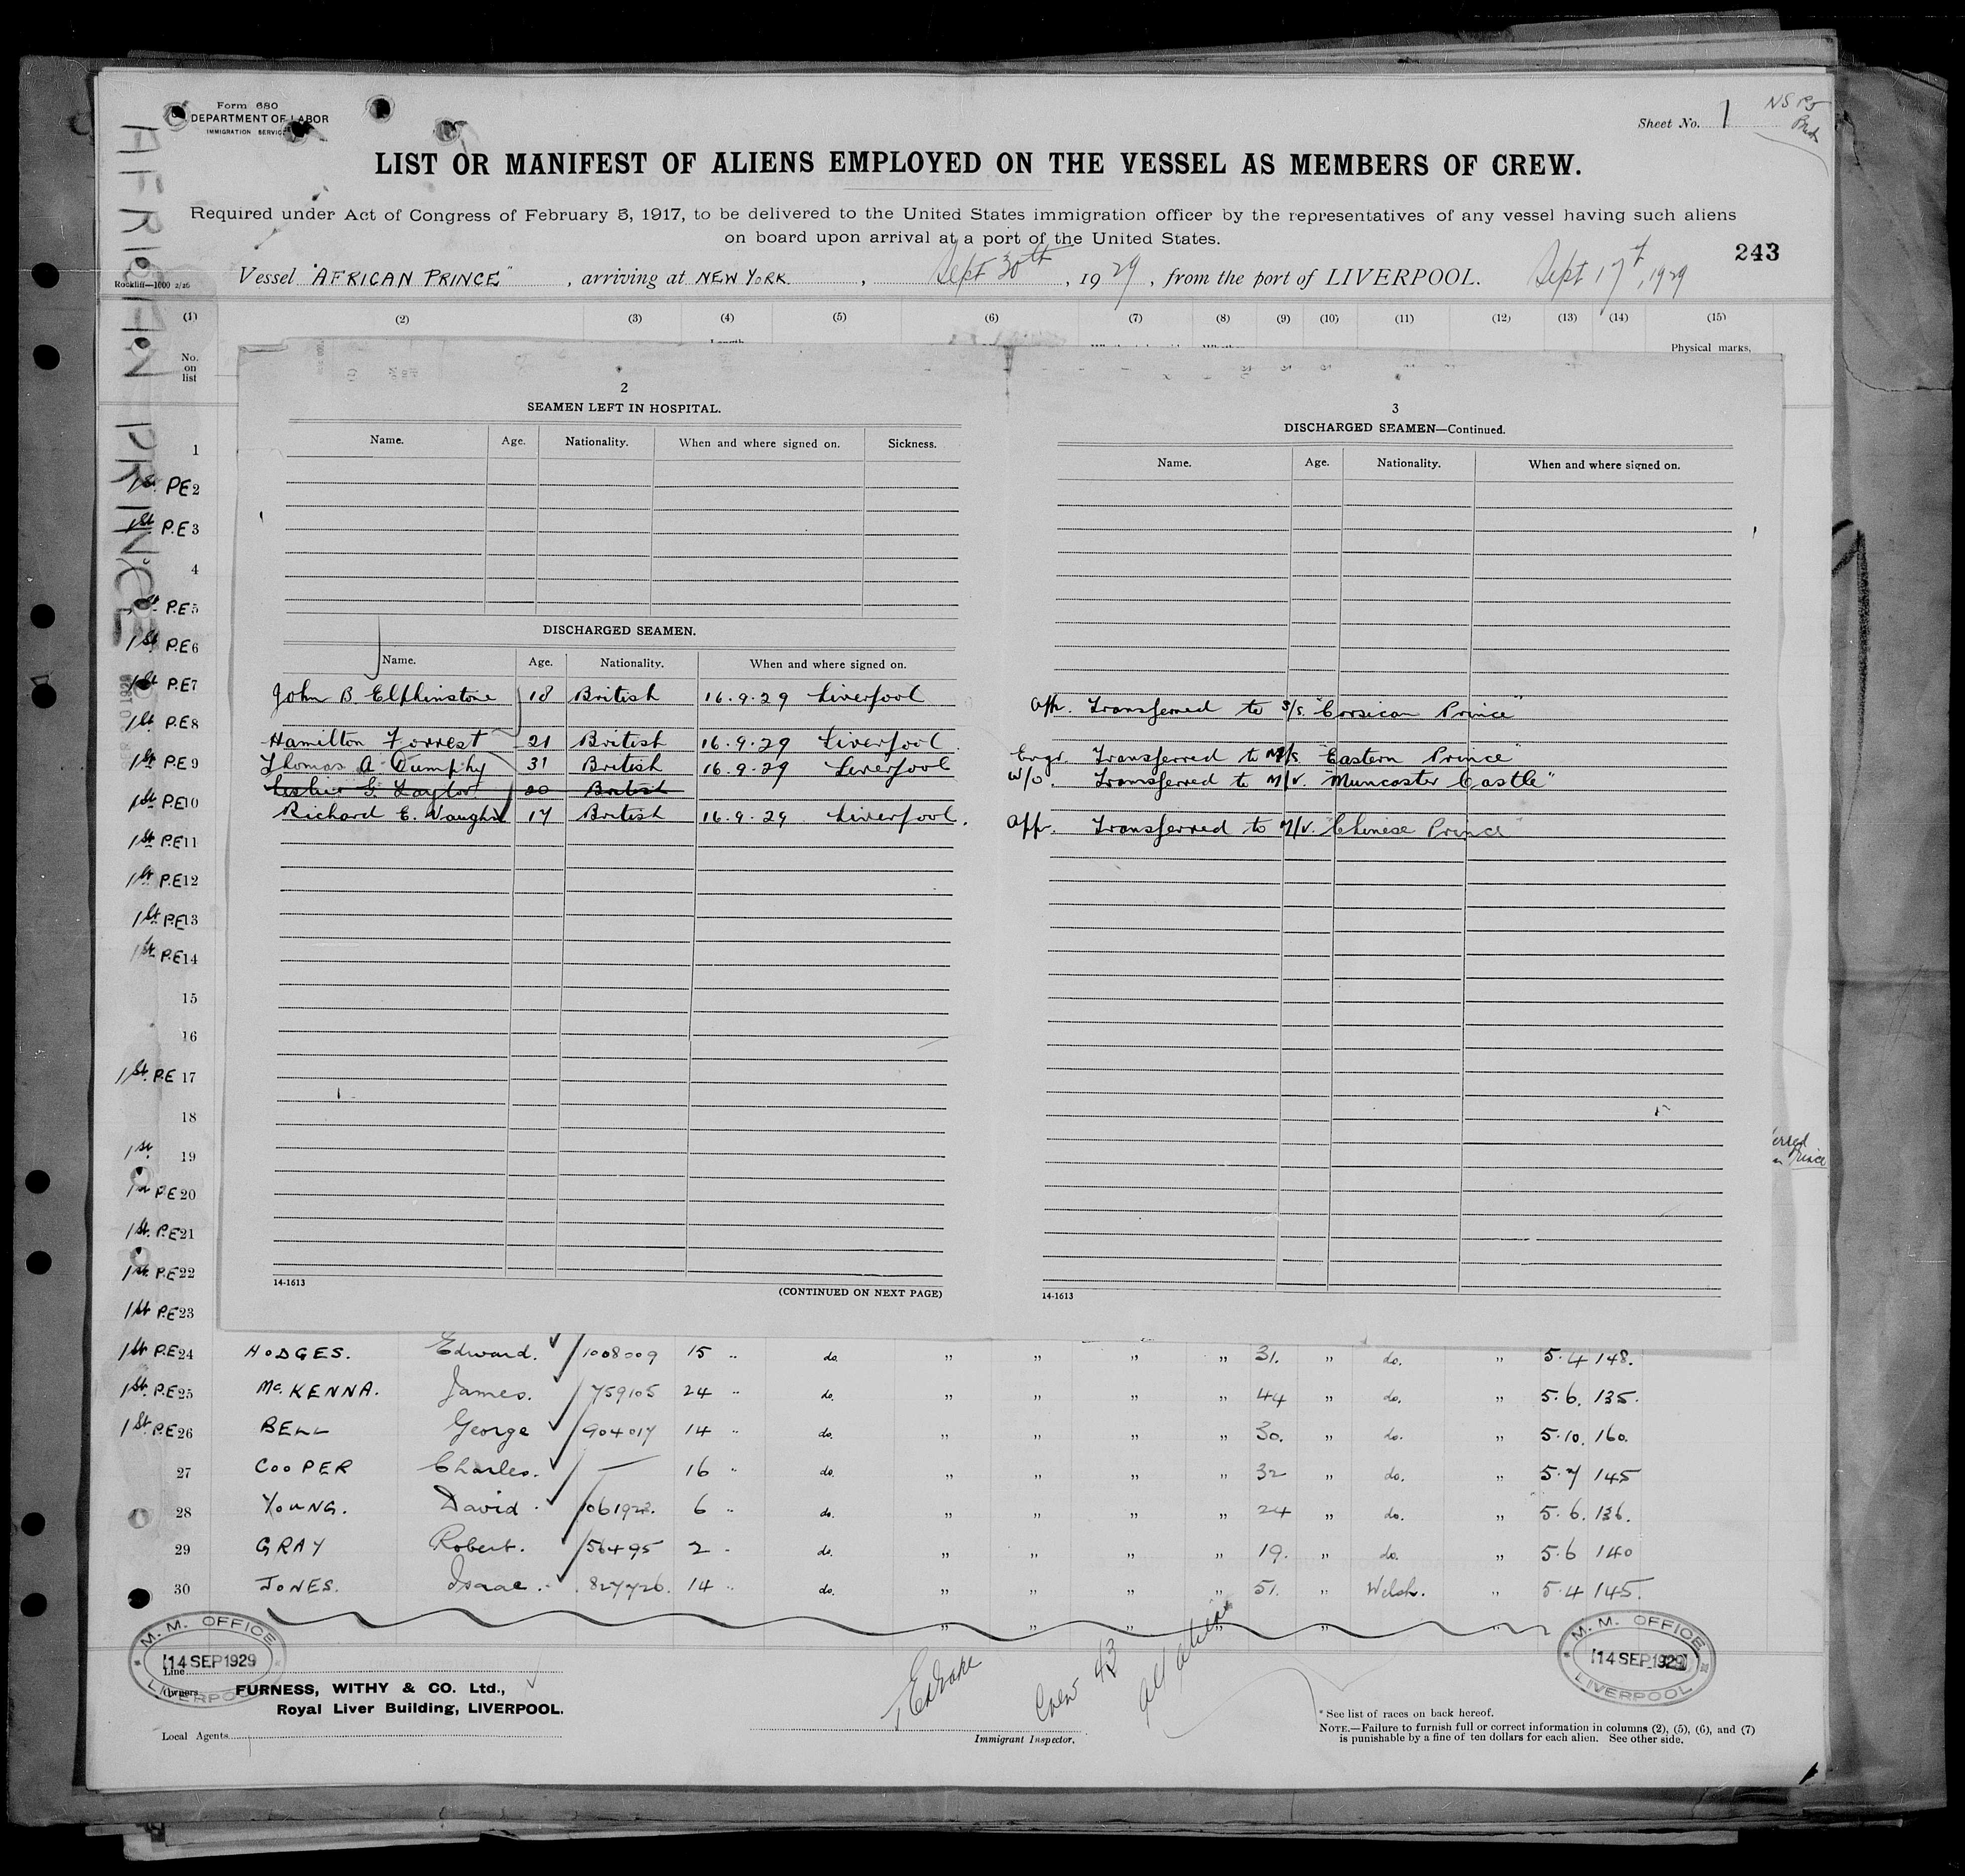 Form 680
DEPARTMENT OF LABOR
IMMIGRATION SERVICE
Sheet No. 1
LIST OR MANIFEST OF ALIENS EMPLOYED ON THE VESSEL AS MEMBERS OF CREW.
Required under Act of Congress of February 5, 1917, to be delivered to the United States immigration officer by the representatives of any vessel having such aliens
on board upon arrival at a port of the United States.
243
Vessel "AFRICAN PRINCE", arriving at NEW YORK, Sept 30th, 1929, from the port of LIVERPOOL. Sept 17th, 1929
Rockliff—1000 2/26
AFRICAN PRINCE
(1) (2) (3) (4) (5) (6) (7) (8) (9) (10) (11) (12) (13) (14) (15)
No. on list
Physical marks,
2
SEAMEN LEFT IN HOSPITAL.
Name. Age. Nationality. When and where signed on. Sickness.
DISCHARGED SEAMEN.
Name. Age. Nationality. When and where signed on.
John B. Elphinstone 18 British 16.9.29 Liverpool
Hamilton Forrest 21 British 16.9.29 Liverpool
Thomas A. Dumphy 31 British 16.9.29 Liverpool
Leslie G. Taylor 20 British
Richard E. Vaughn 17 British 16.9.29 Liverpool.
14-1613
(CONTINUED ON NEXT PAGE)
3
DISCHARGED SEAMEN—Continued.
Name. Age. Nationality. When and where signed on.
App. Transferred to S/S. "Corsican Prince"
Engr. Transferred to M/S "Eastern Prince"
W/O. Transferred to M/V. "Muncaster Castle"
App. Transferred to M/V. "Chinese Prince"
14-1613
1
1st PE 2
1st P.E 3
4
1st P.E 5
1st P.E 6
1st P.E 7
1st P.E 8
1st P.E 9
1st P.E 10
1st P.E 11
1st P.E 12
1st P.E 13
1st P.E 14
15
16
1st P.E 17
18
1st 19
1st P.E 20
1st P.E 21
1st P.E 22
1st P.E 23
1st P.E 24 HODGES. Edward. 1008009 15 " do. " " " " 31. " do. " 5.4 148.
1st P.E 25 McKENNA. James. 759105 24 " do. " " " " 44 " do. " 5.6. 135.
1st P.E 26 BELL George 904017 14 " do. " " " " 30. " do. " 5.10. 160.
27 COOPER Charles. — 16 " do. " " " " 32 " do. " 5.7 145
28 YOUNG. David. 1061923. 6 " do. " " " " 24 " do. " 5.6. 136.
29 GRAY Robert. 56495 2 " do. " " " " 19. " do. " 5.6 140
30 JONES. Isaac. 827726. 14 " do. " " " " 51. " Welsh. " 5.4 145.
M. M. OFFICE
14 SEP 1929
LIVERPOOL
Line
Owners FURNESS, WITHY & CO. Ltd.,
Royal Liver Building, LIVERPOOL.
Local Agents
Crew 43
Immigrant Inspector.
M. M. OFFICE
14 SEP 1929
LIVERPOOL
* See list of races on back hereof.
NOTE.—Failure to furnish full or correct information in columns (2), (5), (6), and (7)
is punishable by a fine of ten dollars for each alien. See other side.